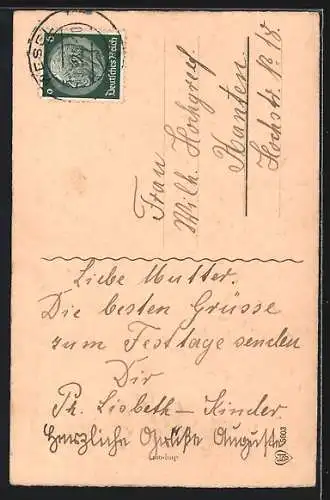 WESEL
Deutsches Reich
6
Frau
Wilh. Hochgreef
Xanten
Hochstr. No 18
Liebe Mutter.
Die besten Grüsse
zum Festtage senden
Dir
Ph. Lisbeth – Kinder.
Herzliche Grüße Auguste